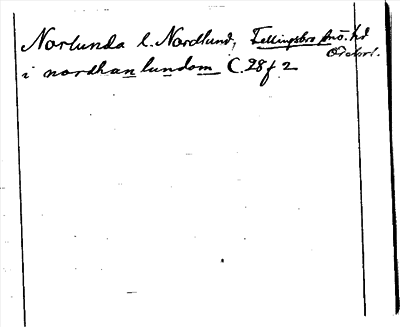 Norlunda l. Nordlund, Fellingsbro sn o. hd
Örebro l.
i nordhan lundom C. 28 f 2